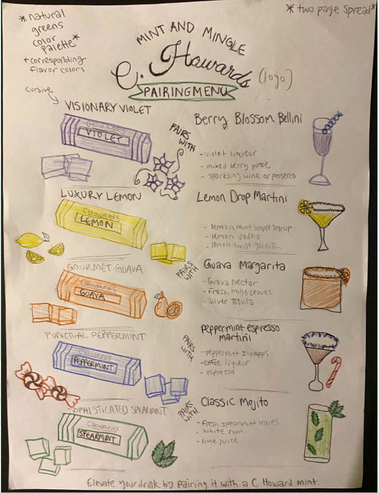 *natural
greens
color
palette*
+ corresponding
flavor colors
cursive
*two page spread*
MINT AND MINGLE
C. Howards
(logo)
PAIRING MENU
VISIONARY VIOLET
VIOLET
PAIRS
WITH
Berry Blossom Bellini
- violet liqueur
- mixed berry puree
- sparkling wine or prosecco
LUXURY LEMON
LEMON
Lemon Drop Martini
- lemon mint simple syrup
- lemon vodka
- lemon twist garnish
GOURMET GUAVA
GUAVA
PAIRS
WITH
Guava Margarita
- Guava nectar
- Fresh mint leaves
- silver tequila
PUNCTUAL PEPPERMINT
PEPPERMINT
PAIRS
WITH
Peppermint espresso
martini
- peppermint schnapps
- coffee liqueur
- espresso
SOPHISTICATED SPEARMINT
SPEARMINT
PAIRS
WITH
Classic Mojito
- fresh spearmint leaves
- white rum
- lime juice
Elevate your drink by pairing it with a C. Howard mint